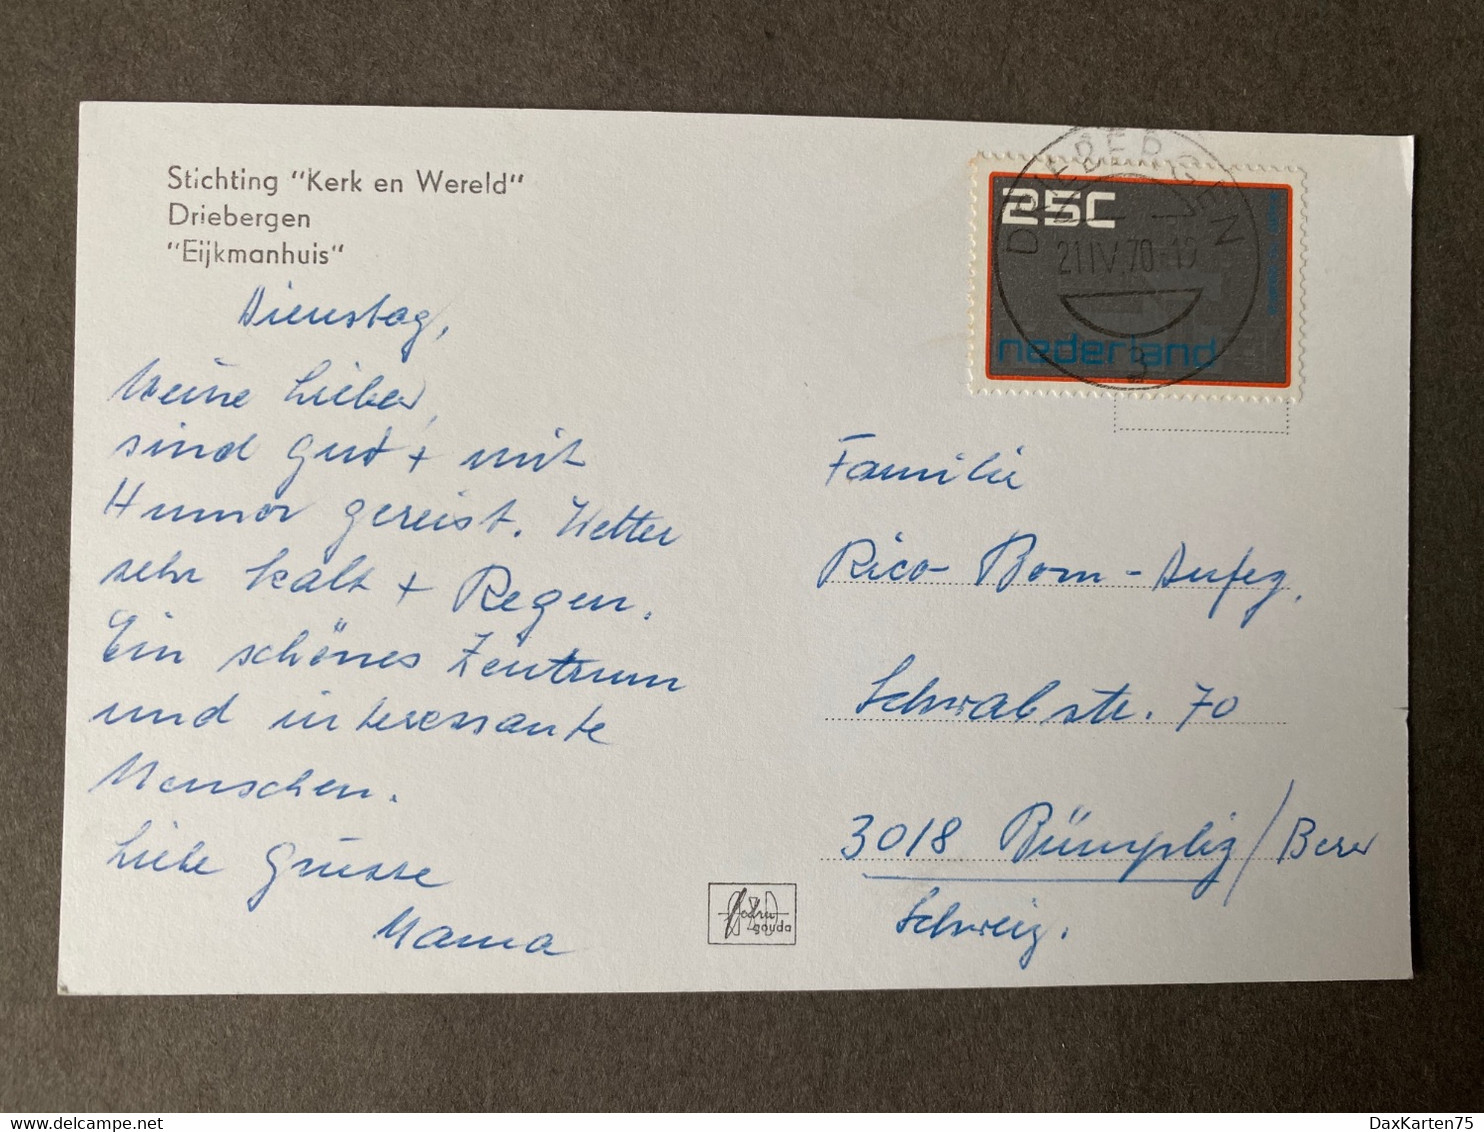 Stichting "Kerk en Wereld"
Driebergen
"Eijkmanhuis"
Dienstag,
Meine Lieben,
sind gut + mit
Humor gereist. Wetter
sehr kalt + Regen.
Ein schönes Zentrum
und interessante
Menschen.
Liebe Grüsse
Mama
DRIEBERGEN
21 IV.70-19
3
25c
nederland
Familie
Rico Born-
Schwabstr. 70
3018 Bümpliz/Bern
Schweiz.
gouda
DaxKarten75